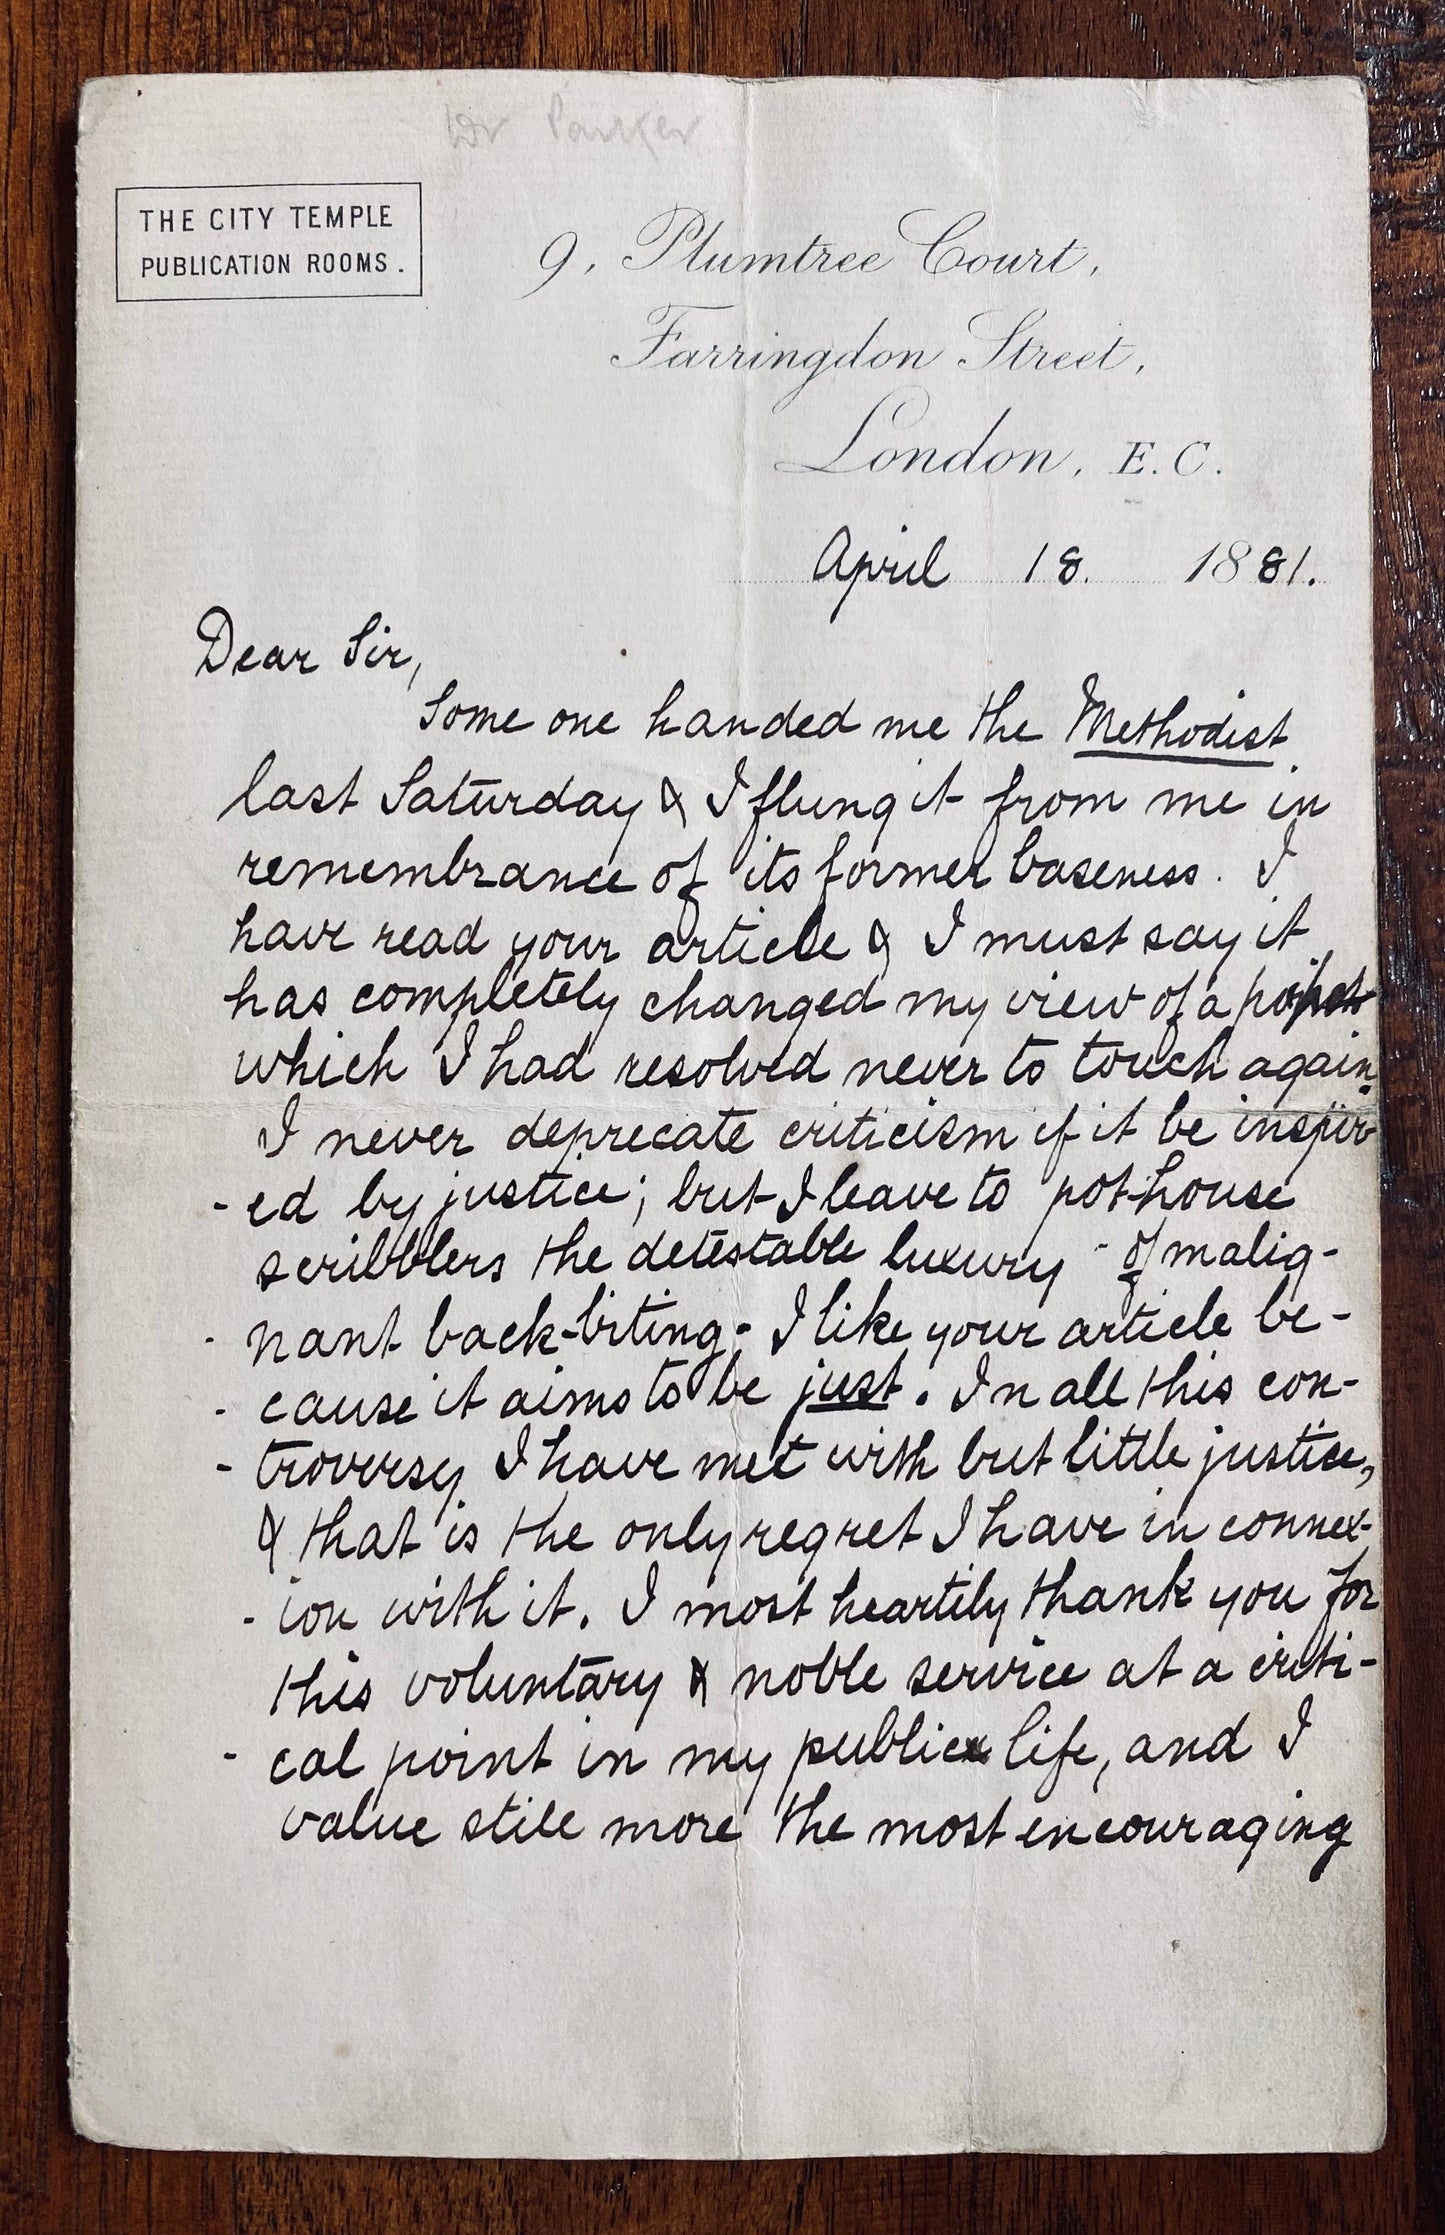 Dr Parker
THE CITY TEMPLE
PUBLICATION ROOMS.
9, Plumtree Court,
Farringdon Street,
London, E.C.
April 18. 1881.
Dear Sir,
Some one handed me the Methodist
last Saturday & I flung it from me in
remembrance of its former baseness. I
have read your article & I must say it
has completely changed my view of a
which I had resolved never to touch again.
I never deprecate criticism if it be inspir-
- ed by justice; but I leave to pot-house
scribblers the detestable luxury of malig-
- nant back-biting. I like your article be-
- cause it aims to be just. In all this con-
- troversy I have met with but little justice,
& that is the only regret I have in connex-
- ion with it. I most heartily thank you for
this voluntary & noble service at a criti-
- cal point in my public life, and I
value still more the most encouraging